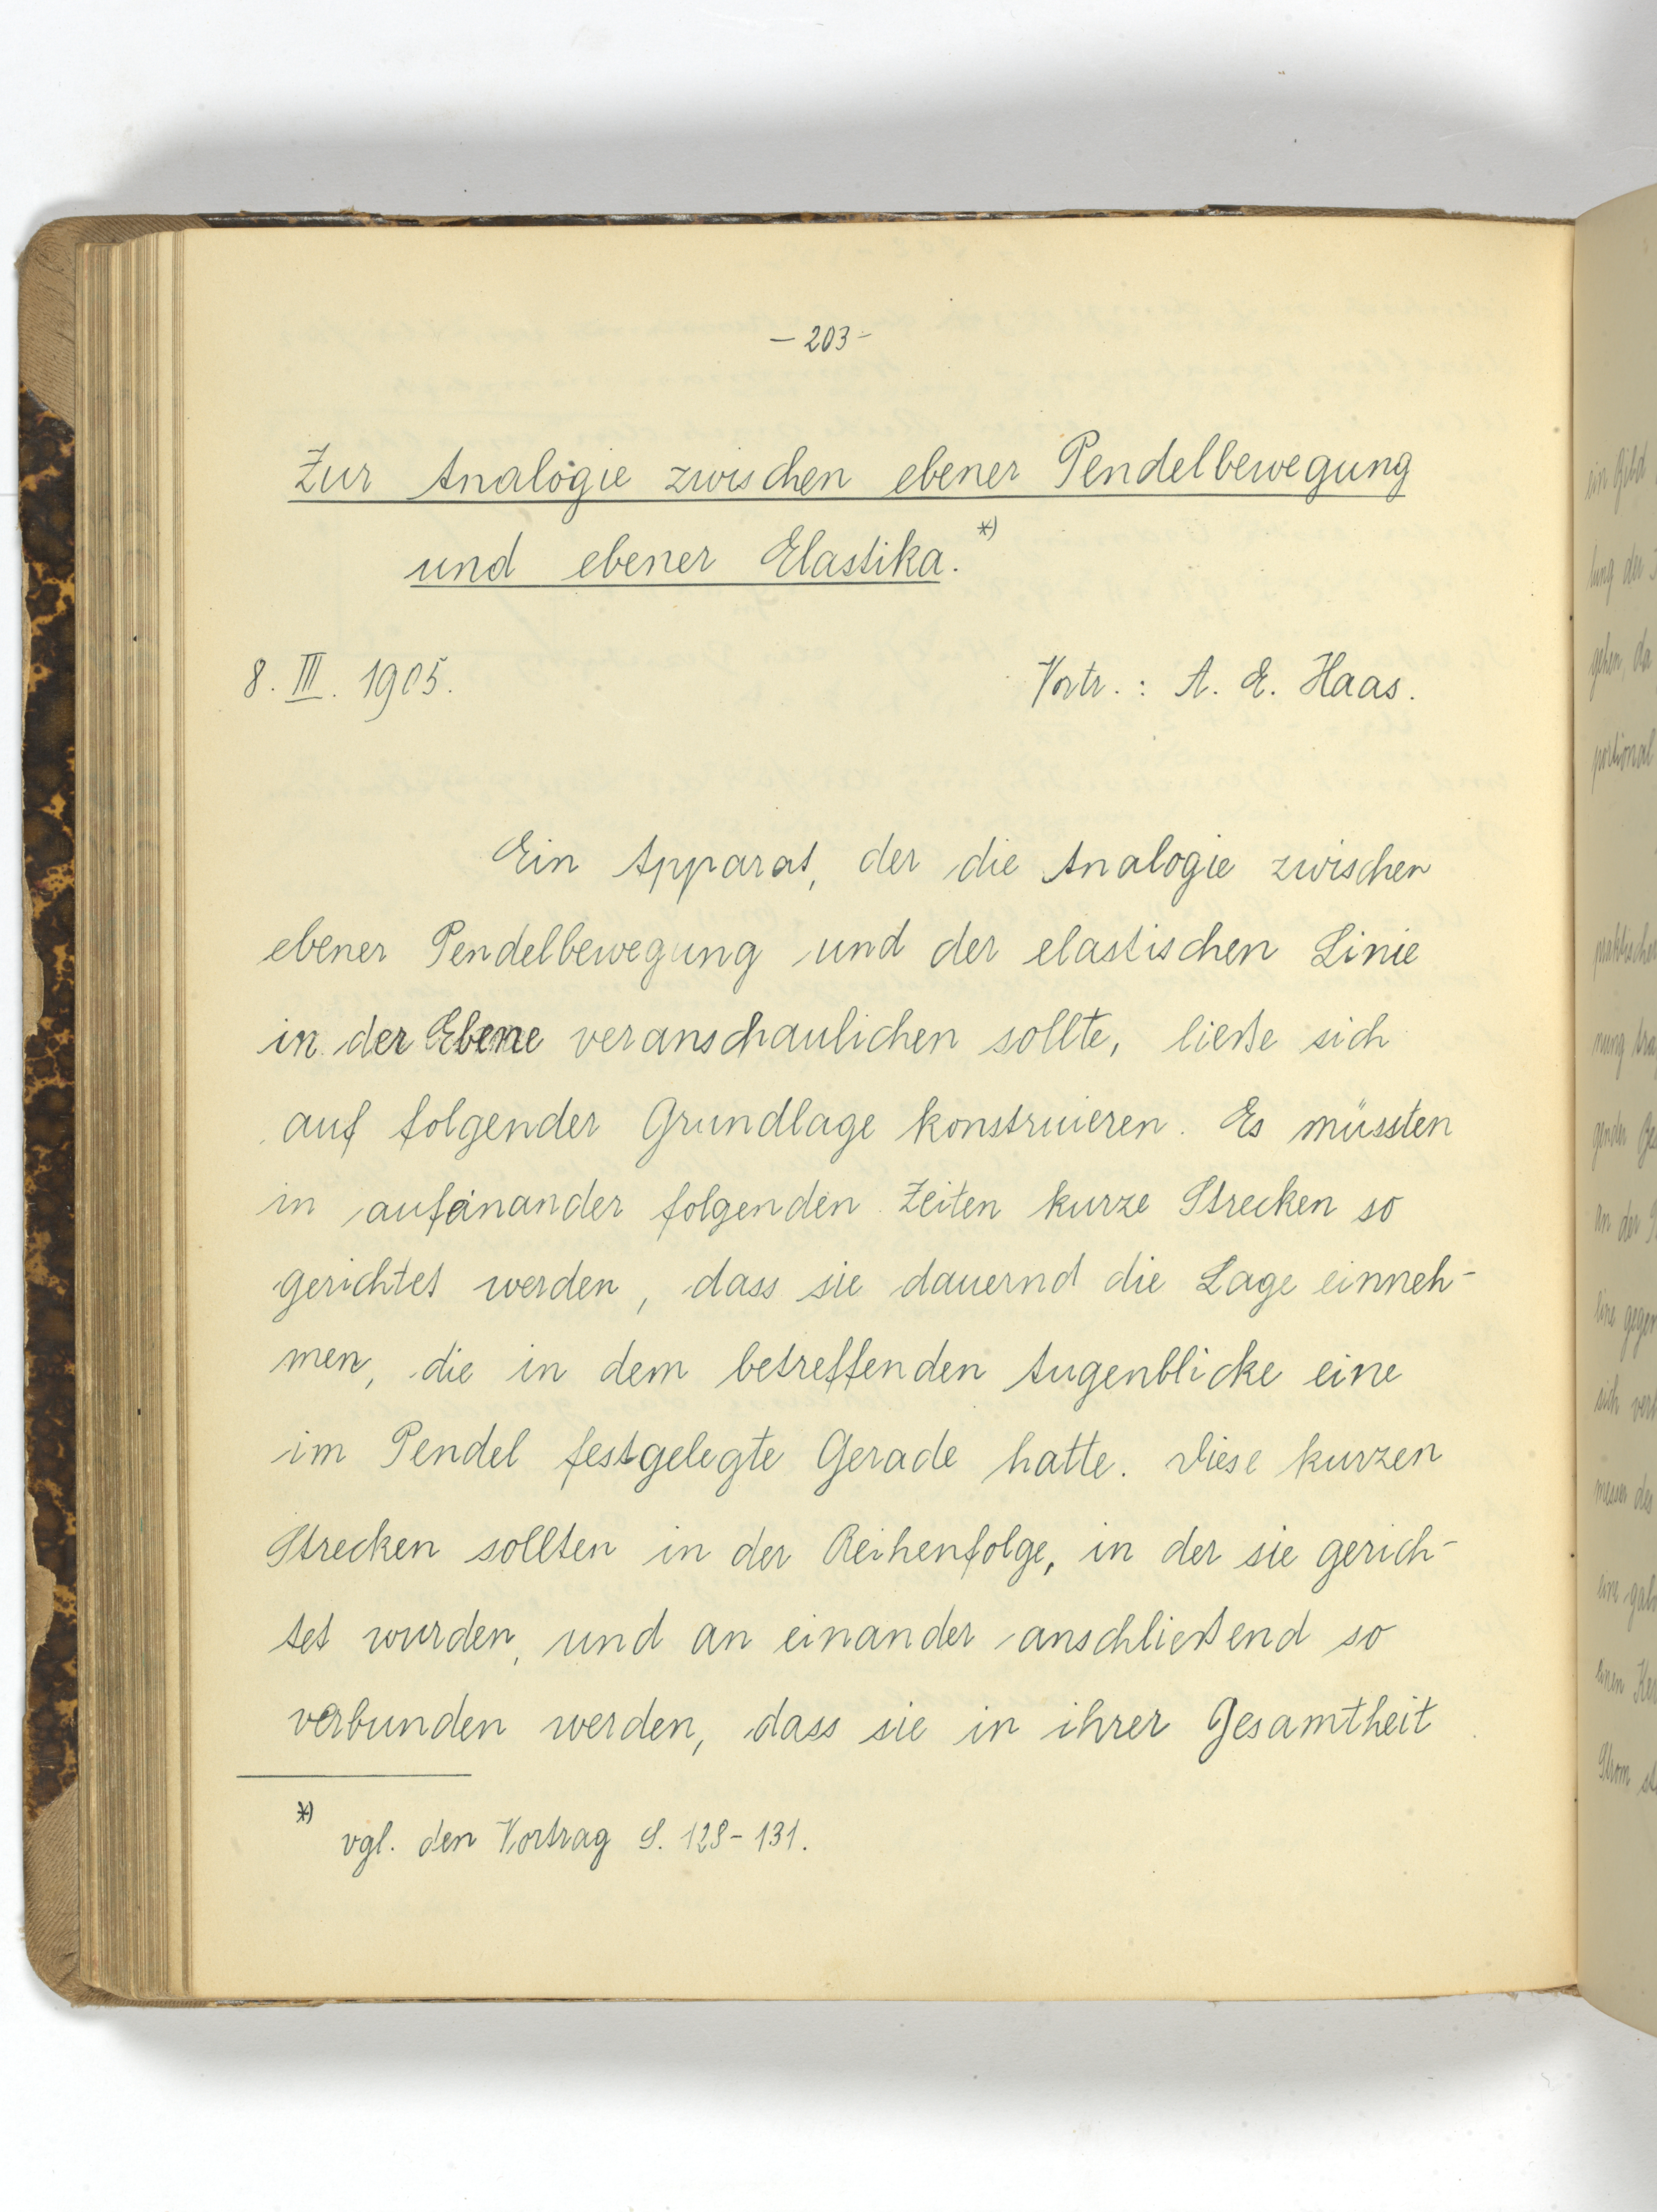 – 203 –
Zur Analogie zwischen ebener Pendelbewegung
und ebener Elastika. *)
8. III. 1905.
Vortr.: A. E. Haas.
Ein Apparat, der die Analogie zwischen
ebener Pendelbewegung und der elastischen Linie
in der Ebene veranschaulichen sollte, ließe sich
auf folgender Grundlage konstruieren. Es müssten
in aufeinander folgenden Zeiten kurze Strecken so
gerichtet werden, dass sie dauernd die Lage einneh-
men, die in dem betreffenden Augenblicke eine
im Pendel festgelegte Gerade hatte. Diese kurzen
Strecken sollten in der Reihenfolge, in der sie gerich-
tet wurden, und an einander anschließend so
verbunden werden, dass sie in ihrer Gesamtheit
*) vgl. den Vortrag S. 128–131.
ein
der
gehen, da
portional
an der
sich
einen
Strom